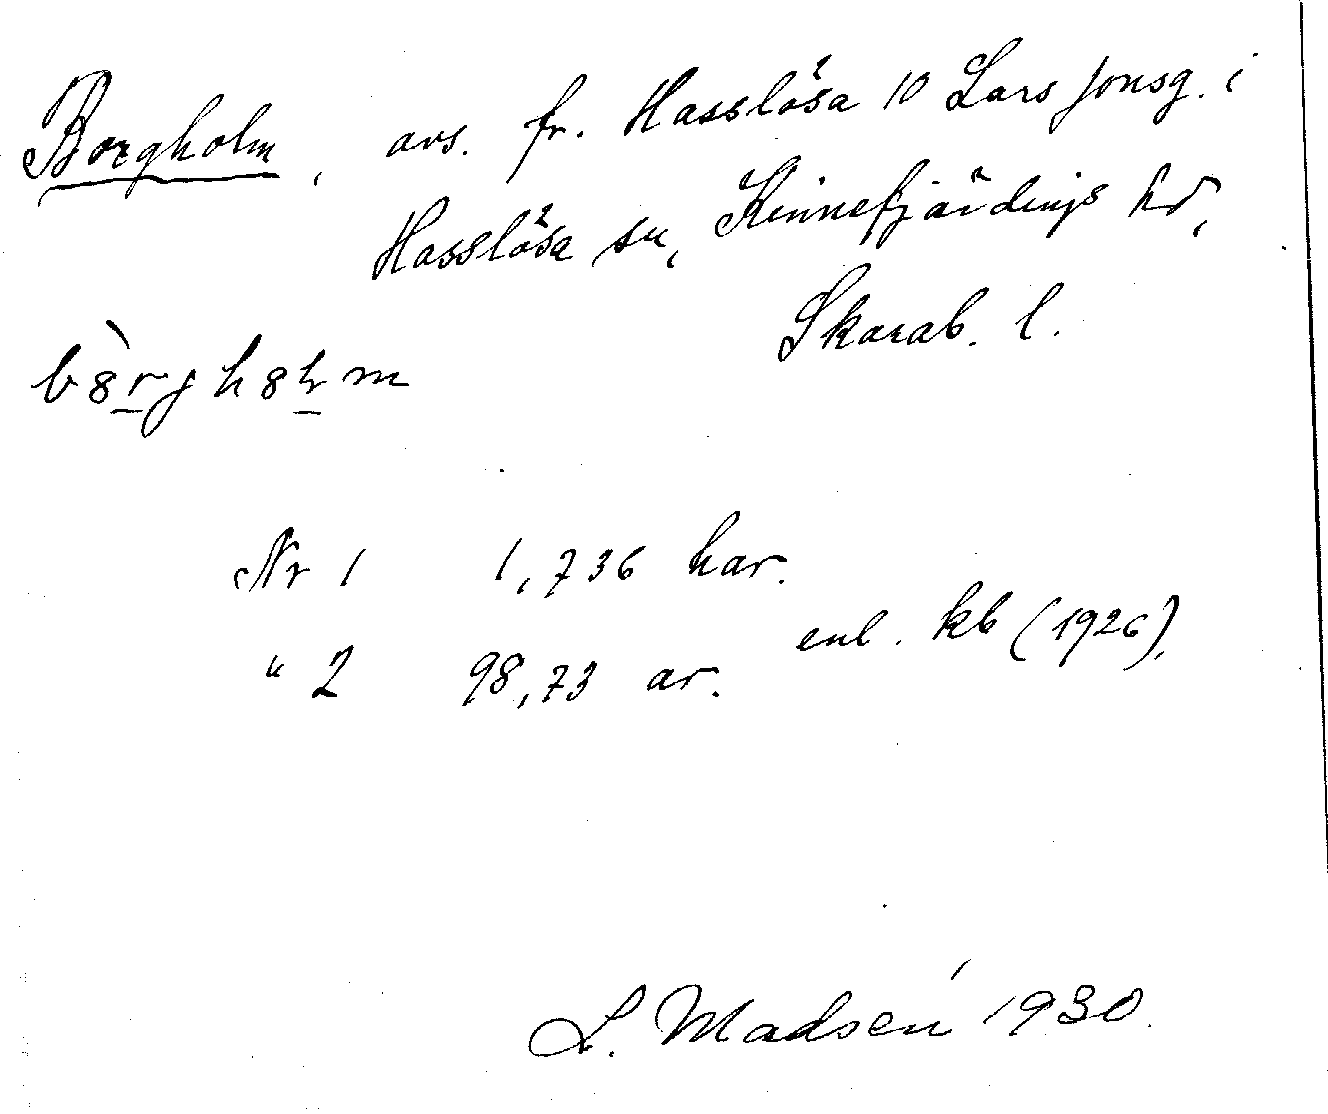 Borgholm, avs. fr. Hasslösa 10 Lars Jonsg. i
Hasslösa sn, Kinnefjärdings hd,
Skarab. l.
Nr 1 1,736 har.
" 2 98,73 ar. enl. kb (1926),
L. Madsén 1930.